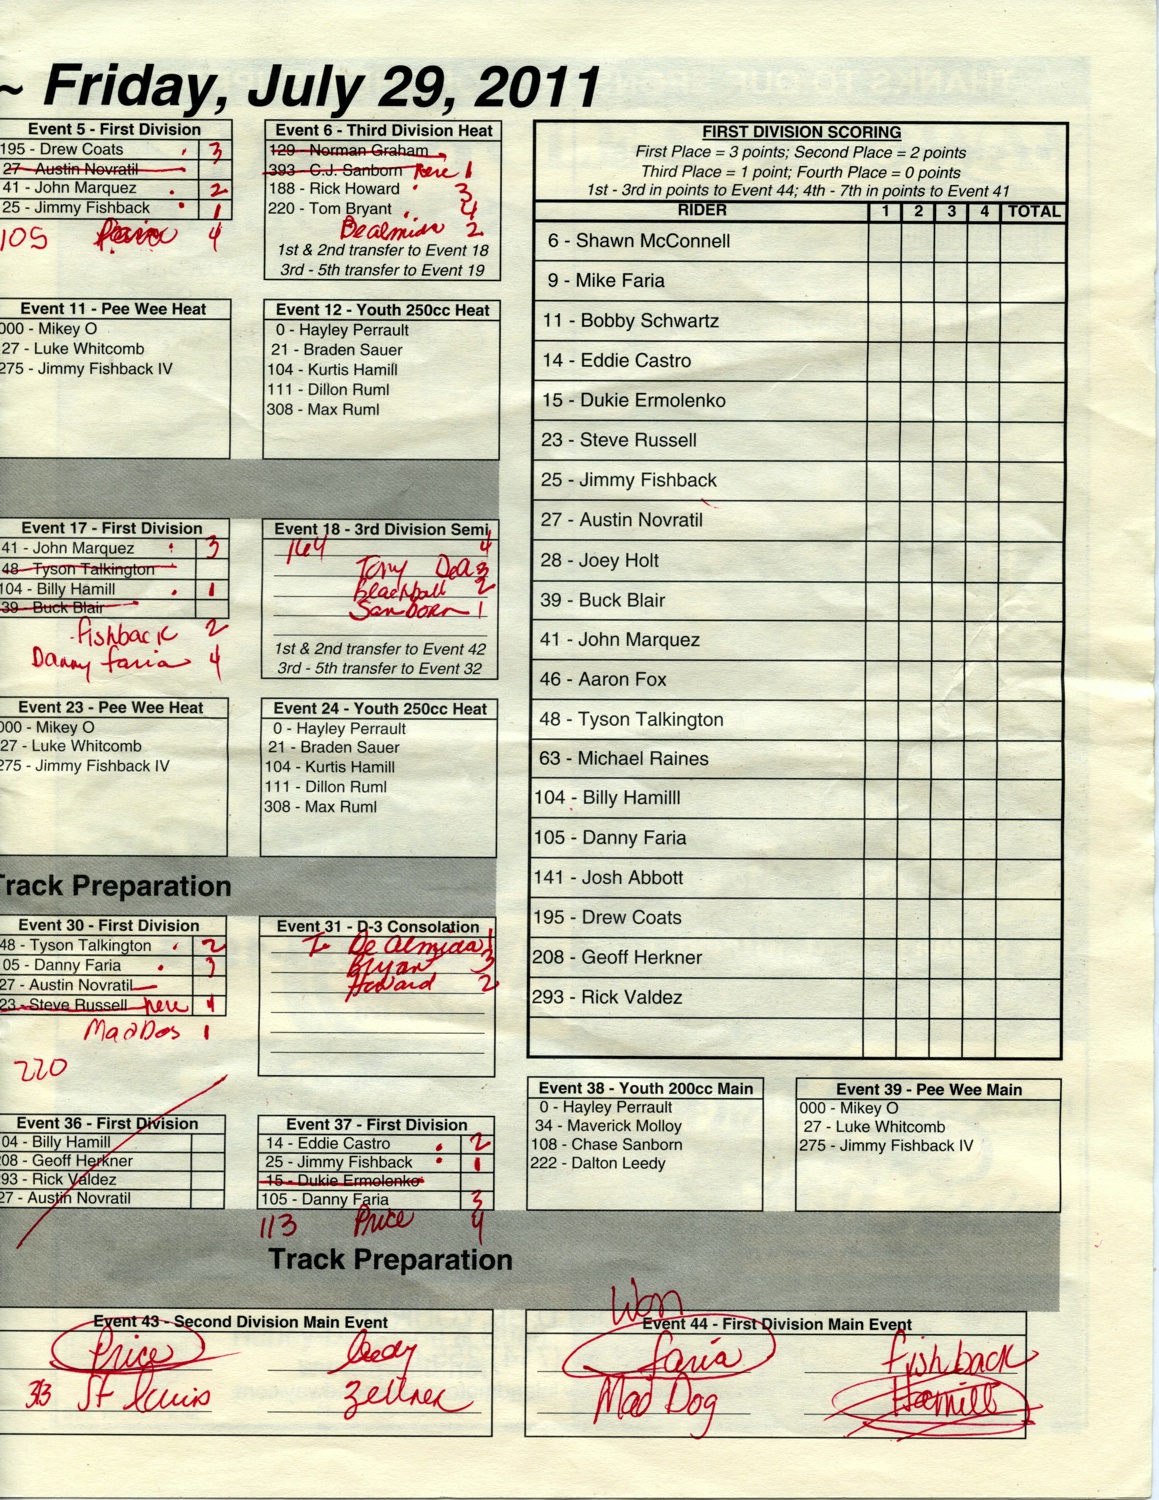 ~ Friday, July 29, 2011
Event 5 - First Division
195 - Drew Coats 3
27- Austin Novratil
41 - John Marquez 2
25 - Jimmy Fishback 1
105 4
Event 6 - Third Division Heat
129 - Norman Graham
393 - C.J. Sanborn here 1
188 - Rick Howard 3
220 - Tom Bryant 4
Dealmida 2
1st & 2nd transfer to Event 18
3rd - 5th transfer to Event 19
FIRST DIVISION SCORING
First Place = 3 points; Second Place = 2 points
Third Place = 1 point; Fourth Place = 0 points
1st - 3rd in points to Event 44; 4th - 7th in points to Event 41
RIDER 1 2 3 4 TOTAL
6 - Shawn McConnell
9 - Mike Faria
11 - Bobby Schwartz
14 - Eddie Castro
15 - Dukie Ermolenko
23 - Steve Russell
25 - Jimmy Fishback
27 - Austin Novratil
28 - Joey Holt
39 - Buck Blair
41 - John Marquez
46 - Aaron Fox
48 - Tyson Talkington
63 - Michael Raines
104 - Billy Hamilll
105 - Danny Faria
141 - Josh Abbott
195 - Drew Coats
208 - Geoff Herkner
293 - Rick Valdez
Event 11 - Pee Wee Heat
000 - Mikey O
27 - Luke Whitcomb
275 - Jimmy Fishback IV
Event 12 - Youth 250cc Heat
0 - Hayley Perrault
21 - Braden Sauer
104 - Kurtis Hamill
111 - Dillon Ruml
308 - Max Ruml
Event 17 - First Division
41 - John Marquez 3
48- Tyson Talkington
104 - Billy Hamill 1
39 - Buck Blair
fishback 2
Danny faria 4
Event 18 - 3rd Division Semi
164 4
Tony DeA 3
Blackball 2
Sanborn 1
1st & 2nd transfer to Event 42
3rd - 5th transfer to Event 32
Event 23 - Pee Wee Heat
000 - Mikey O
27 - Luke Whitcomb
275 - Jimmy Fishback IV
Event 24 - Youth 250cc Heat
0 - Hayley Perrault
21 - Braden Sauer
104 - Kurtis Hamill
111 - Dillon Ruml
308 - Max Ruml
Track Preparation
Event 30 - First Division
48 - Tyson Talkington 2
05 - Danny Faria 3
27 - Austin Novratil
23 - Steve Russell here 4
MadDog 1
220
Event 31 - D-3 Consolation
T. De Almida 1
Bryant 3
Howard 2
Event 36 - First Division
04 - Billy Hamill
08 - Geoff Herkner
93 - Rick Valdez
27 - Austin Novratil
Event 37 - First Division
14 - Eddie Castro 2
25 - Jimmy Fishback 1
15 - Dukie Ermolenko
105 - Danny Faria 3
113 Price 4
Event 38 - Youth 200cc Main
0 - Hayley Perrault
34 - Maverick Molloy
108 - Chase Sanborn
222 - Dalton Leedy
Event 39 - Pee Wee Main
000 - Mikey O
27 - Luke Whitcomb
275 - Jimmy Fishback IV
Track Preparation
Event 43 - Second Division Main Event
Price leedy
33 St louis Zellner
Won
Event 44 - First Division Main Event
faria fishback
Mad Dog Hamill